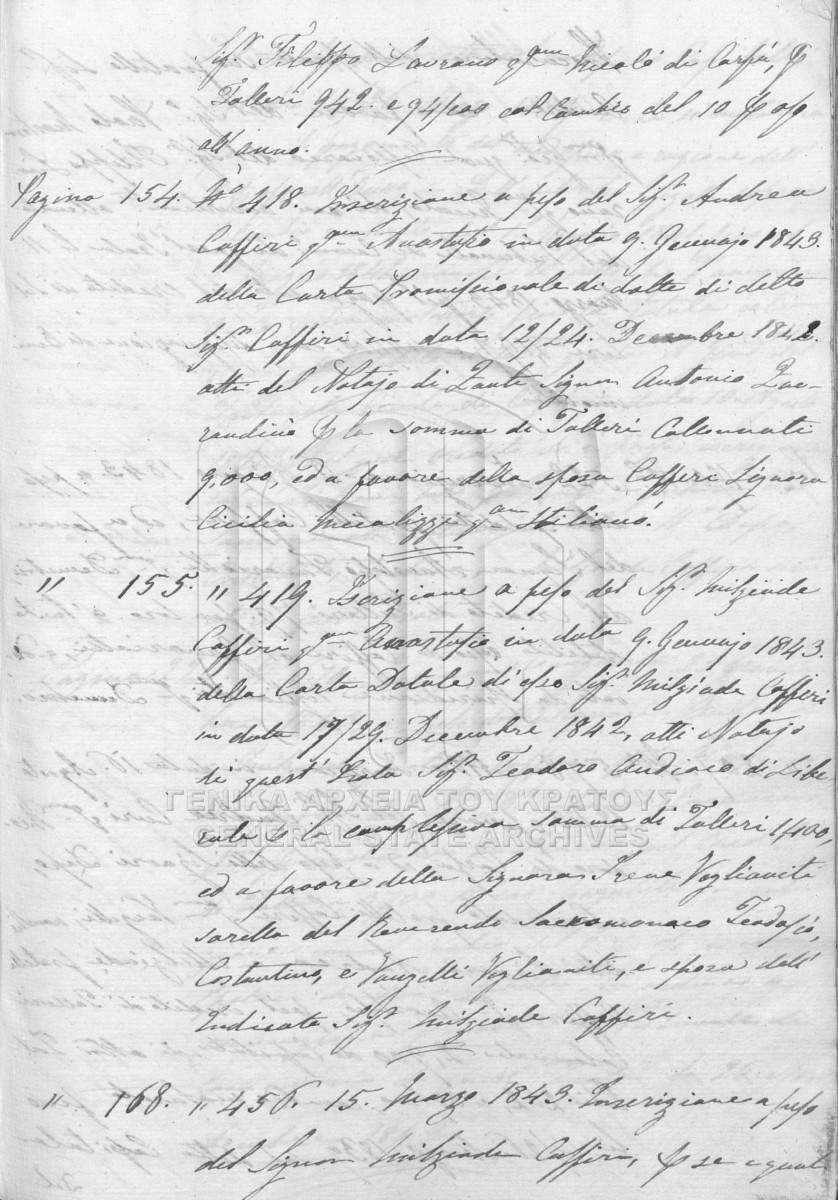 Sig.r Filippo Lavrano q.am Nicolò di Corfù, p
Talleri 942. e 94/100 col Cambio del 10 p %
all'anno.
Pagina 154. N.o 418. Inscrizione a peso del Sig.r Andrea
Caffiri q.am Anastasio in data 9. Gennajo 1843.
della Carta Promissionale di dotte di detto
Sig.r Caffiri in data 12/24. Decembre 1842.
atti del Notajo di Zante Signor Antonio
p la somma di Talleri Collonnati
9,000, ed a favore della sposa Caffiri Signora
Cicilia Micalizzi q.am Stilianò.
" 155. " 419. Iscrizione a peso del Sig.r Milziade
Caffiri q.am Anastasio, in data 9. Gennajo 1843.
della Carta Dotale di esso Sig.r Milziade Caffiri
in data 17/29. Decembre 1842, atti Notajo
di quest' Isola Sig.r Teodoro Andiaco di Libe
rale p la complessiva somma di Talleri 1,400,
ed a favore della Signora Irene Voglianiti
sorella del Reverendo Sacromonaco Teodosio,
Costantino, e Vanzelli Voglianiti, e sposa dell'
Indicato Sig.r Milziade Caffiri.
" 168. " 456. 15. Marzo 1843. Inscrizione a peso
del Signor Milziade Caffiri, p se e qual
ΓΕΝΙΚΑ ΑΡΧΕΙΑ ΤΟΥ ΚΡΑΤΟΥΣ
GENERAL STATE ARCHIVES